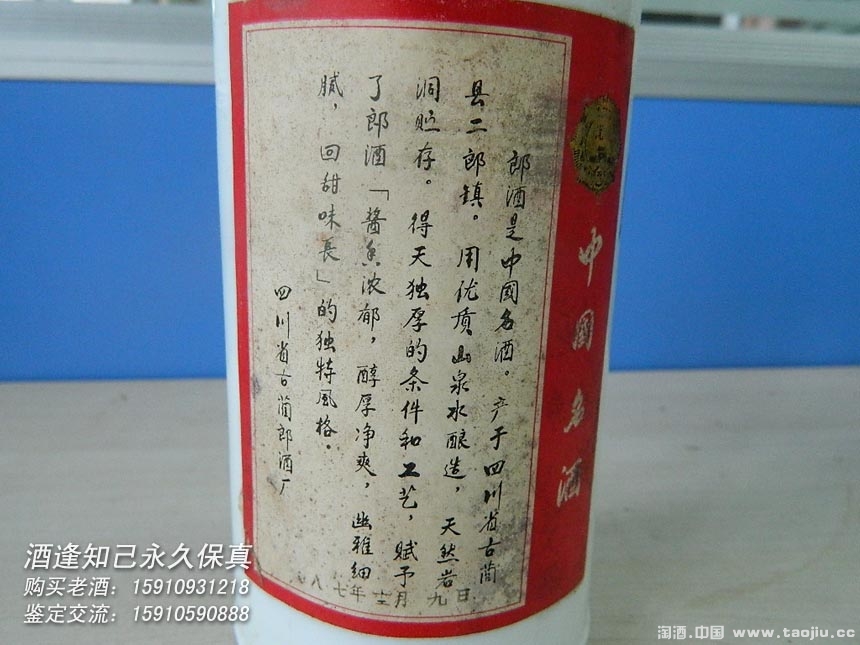 郎酒是中國名酒。产于四川省古蔺
县二郎镇。用优质山泉水酿造，天然岩
洞贮存。得天独厚的条件和工艺，赋予
了郎酒「酱香浓郁，醇厚净爽，幽雅细
腻，回甜味長」的独特風格。
四川省古蔺郎酒厂
八七年十二月九日
中國名酒
酒逢知己永久保真
购买老酒：15910931218
鉴定交流：15910590888
淘酒.中国 www.taojiu.cc